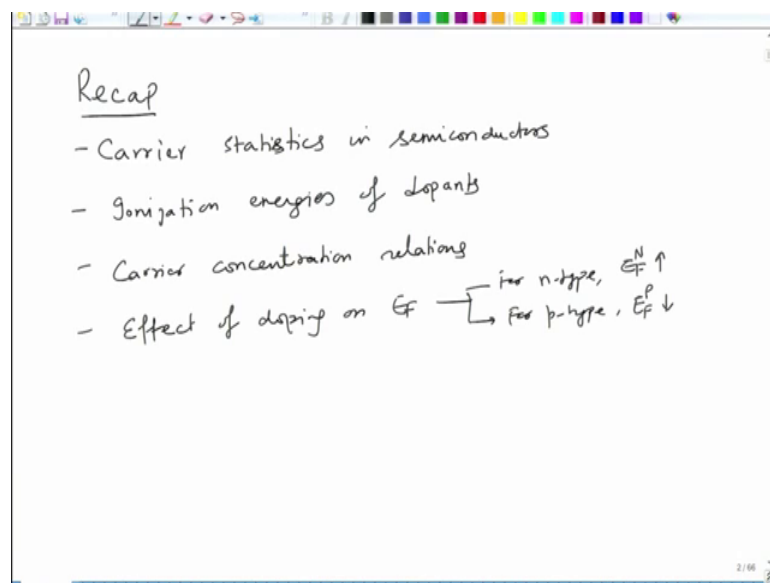 Recap
- Carrier statistics in semiconductors
- Ionization energies of dopants
- Carrier concentration relations
- Effect of doping on EF → For n-type, EF^N ↑
→ For p-type, EF^P ↓
2/66